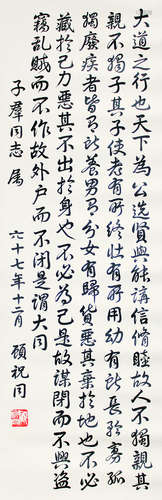 大道之行也天下為公選賢與能講信脩睦故人不獨親其
親不獨子其子使老有所終壯有所用幼有所長矜寡孤
獨廢疾者皆有所養男有分女有歸貨惡其棄於地也不必
藏於己力惡其不出於身也不必為己是故謀閉而不興盜
竊亂賊而不作故外戶而不閉是謂大同
子群同志屬
六十七年十二月 顧祝同